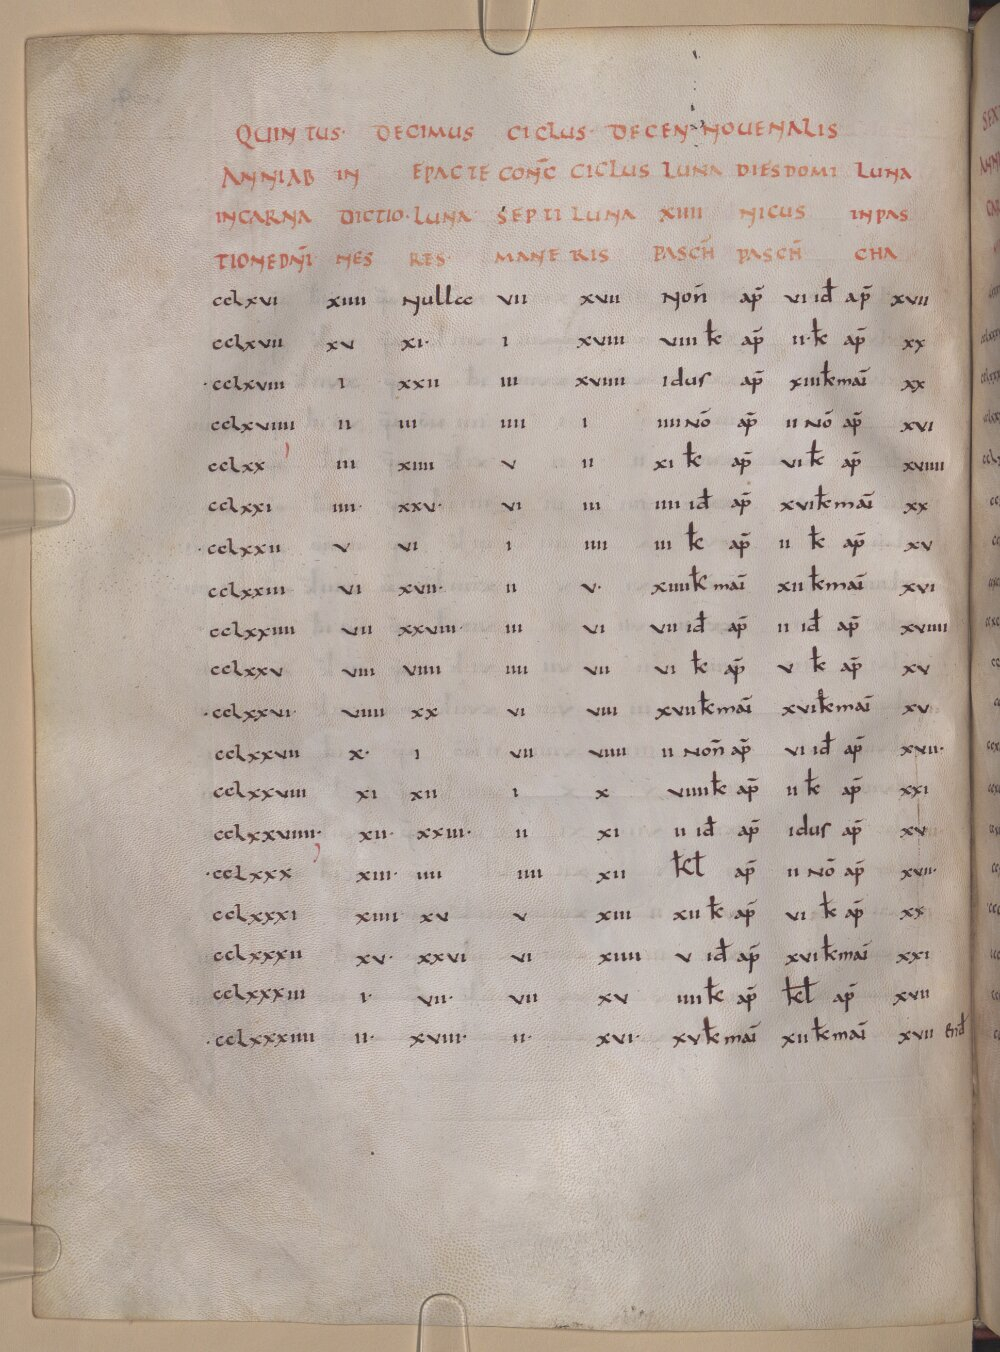 QUINTUS· DECIMUS CICLUS· DECENNOVENALIS
ANNI AB IN EPACTE CONC̄ CICLUS LUNA DIES DOMI LUNA
INCARNA DICTIO· LUNA SEPTI LUNA XIIII NICUS IN PAS
TIONE DN̄I NES RES· MANE RIS PASCH̄ PASCH̄ CHA
cclxvi xiiii Nullae vii xvii Non̄ ap̄ vi id̄ ap̄ xvii
cclxvii xv xi· i xviii viii kl̄ ap̄ ii· kl̄ ap̄ xx
·cclxviii i xxii iii xviiii idus ap̄ xiii kl̄ mai̅ xx
cclxviiii ii iii iiii i iiii Nō ap̄ ii Nō ap̄ xvi
cclxx iii xiiii v ii xi kl̄ ap̄ vi kl̄ ap̄ xviiii
cclxxi iiii· xxv· vi iii iiii id̄ ap̄ xvi kl̄ mai̅ xx
·cclxxii v vi i iiii iii kl̄ ap̄ ii kl̄ ap̄ xv
cclxxiii vi xvii· ii v· xiiii kl̄ mai̅ xii kl̄ mai̅ xvi
cclxxiiii vii xxviii· iii vi vii id̄ ap̄ ii id̄ ap̄ xviiii
cclxxv viii viiii iiii vii vi kl̄ ap̄ v kl̄ ap̄ xv
·cclxxvi· viiii xx vi viii xvii kl̄ mai̅ xvi kl̄ mai̅ xv
cclxxvii x· i vii viiii ii Non̄ ap̄ vi id̄ ap̄ xvii·
cclxxviii xi xii i x viiii kl̄ ap̄ ii kl̄ ap̄ xxi
cclxxviiii· xii· xxiii· ii xi ii id̄ ap̄ idus ap̄ xv
·cclxxx xiii· iiii iiii xii kl̄ ap̄ ii Nō ap̄ xvii·
cclxxxi xiiii xv v xiii xii kl̄ ap̄ vi kl̄ ap̄ xx
cclxxxii xv· xxvi vi xiiii v id̄ ap̄ xvi kl̄ mai̅ xxi
cclxxxiii i· vii· vii xv iiii kl̄ ap̄ kl̄ ap̄ xvii
·cclxxxiiii ii· xviii· ii· xvi· xv kl̄ mai̅ xii kl̄ mai̅ xvii